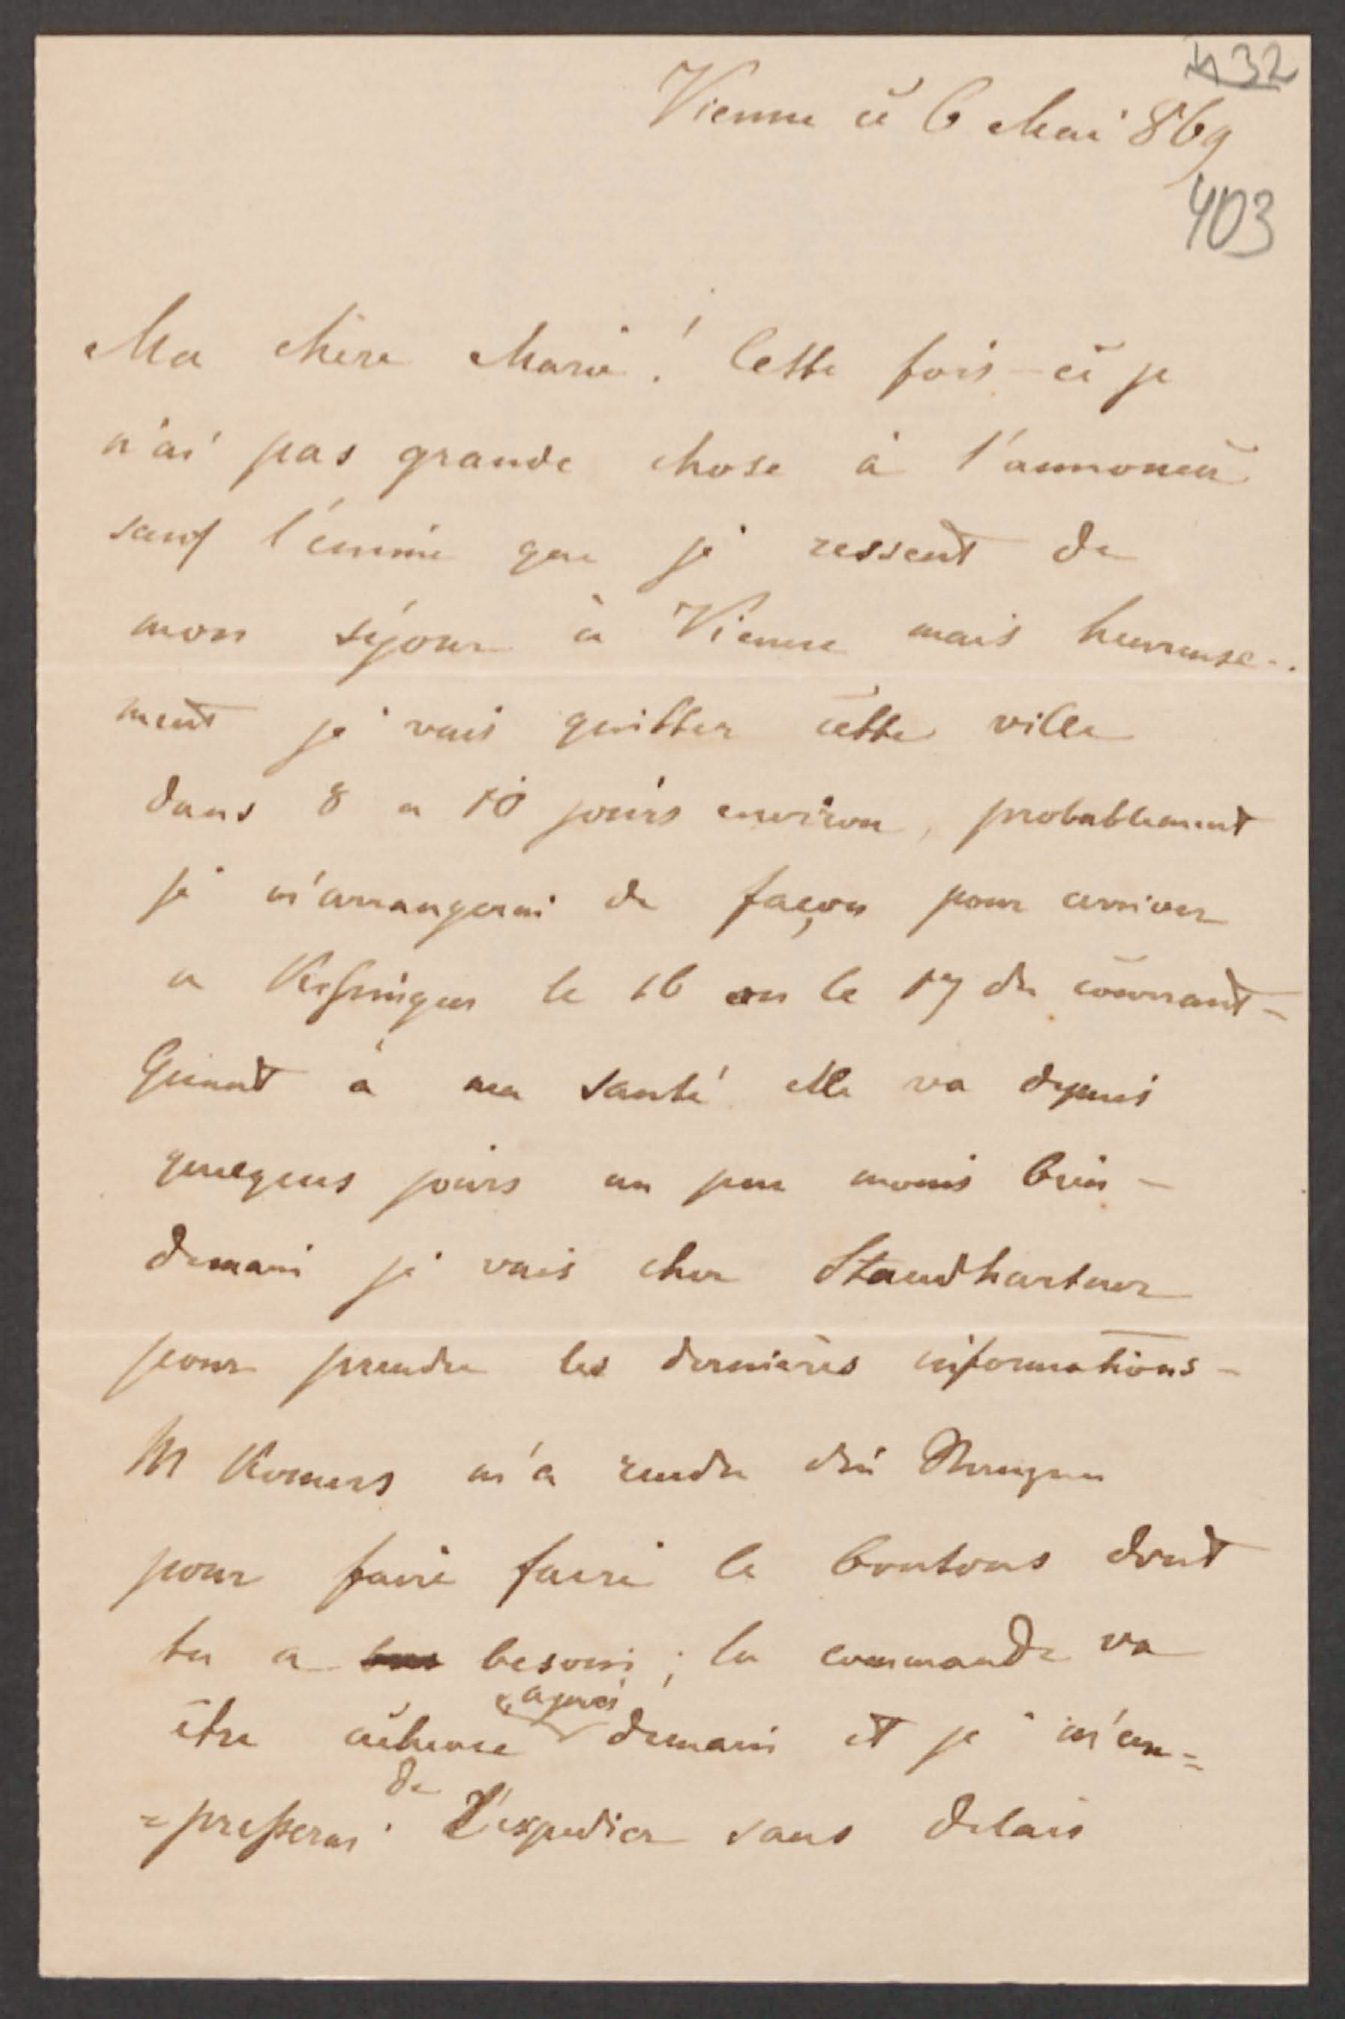 432
Vienne cè 6 Mai 869
403
Ma chère Marie! Cette fois-ci je
n'ai pas grande chose à t'annoncer
sauf l'ennuie que je ressent de
mon séjour à Vienne mais heureuse-
ment je vais quitter cette ville
dans 8 a 10 jours environ, probablement
je m'arrangerai de façon pour arriver
a Kissingen le 16 ou le 17 du courrant-
Quant à ma santé elle va depuis
quelques jours un peu moins bien-
demain je vais chez Standhartner
pour prendre les dernières informations-
M Komers m'a rendu
pour faire faire le boutons dont
tu a besoin; la commande va
être achevée après demain et je m'em=
=presserai de l'expedier sans delais